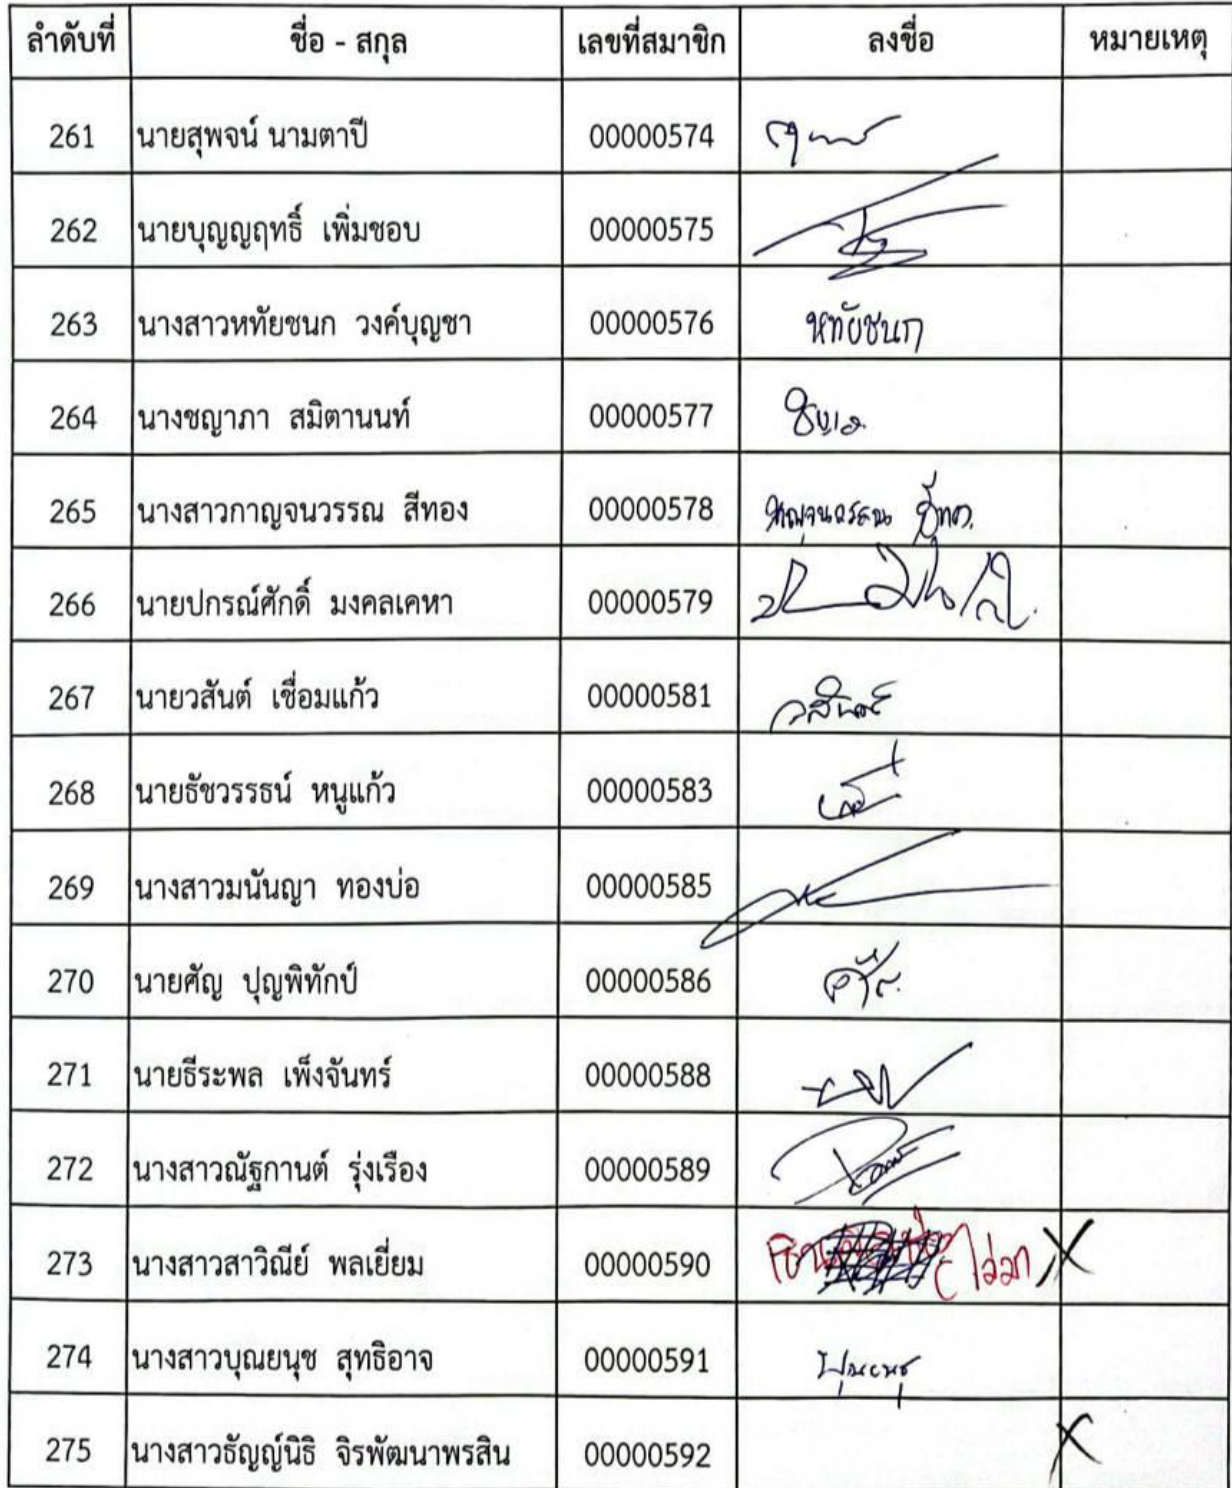 ลำดับที่ ชื่อ - สกุล เลขที่สมาชิก ลงชื่อ หมายเหตุ
261 นายสุพจน์ นามตาปี 00000574
262 นายบุญญฤทธิ์ เพิ่มชอบ 00000575
263 นางสาวหทัยชนก วงค์บุญชา 00000576 หทัยชนก
264 นางชญาภา สมิตานนท์ 00000577
265 นางสาวกาญจนวรรณ สีทอง 00000578 กาญจนวรรณ
266 นายปกรณ์ศักดิ์ มงคลเคหา 00000579
267 นายวสันต์ เชื่อมแก้ว 00000581 วสันต์
268 นายธัชวรรธน์ หนูแก้ว 00000583
269 นางสาวมนันญา ทองบ่อ 00000585
270 นายศัญ ปุญพิทักป์ 00000586
271 นายธีระพล เพ็งจันทร์ 00000588
272 นางสาวณัฐกานต์ รุ่งเรือง 00000589
273 นางสาวสาวิณีย์ พลเยี่ยม 00000590 X
274 นางสาวบุณยนุช สุทธิอาจ 00000591
275 นางสาวธัญญ์นิธิ จิรพัฒนาพรสิน 00000592 X